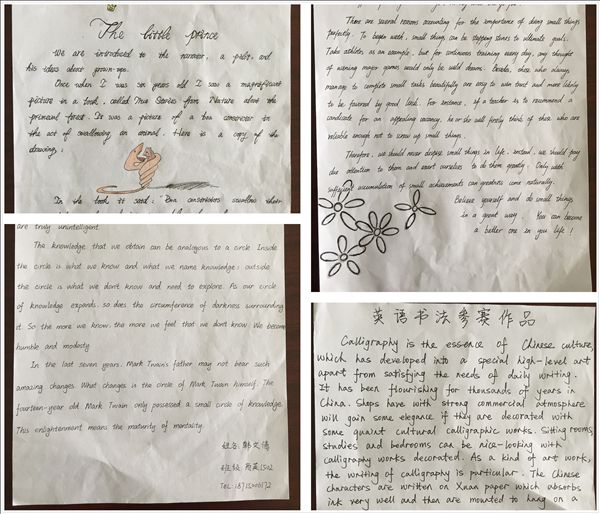 The little prince
We are introduced to the narrator, a pilot, and
his ideas about grown-ups.
Once when I was six years old I saw a magnificent
picture in a book, called True Stories from Nature about the
primeval forest. It was a picture of a boa constrictor in
the act of swallowing an animal. Here is a copy of the
drawing:
In the book it said: Boa constrictors swallow their
There are several reasons accounting for the importance of doing small things
perfectly. To begin with, small things can be stepping stones to ultimate goals.
Take athletes as an example, but for continuous training every day, any thought
of winning major games would only be wild dreams. Besides, those who always
manage to complete small tasks beautifully are easy to win trust and more likely
to be favored by good luck. For instance, if a teacher is to recommend a
candidate for an appealing vacancy, he or she will firstly think of those who are
reliable enough not to screw up small things.
Therefore, we should never despise small things in life, instead, we should pay
due attention to them and exert ourselves to do them greatly. Only with
sufficient accumulation of small achievements can greatness come naturally.
Believe yourself and do small things
in a great way. You can become
a better one in you life!
are truly unintelligent.
The knowledge that we obtain can be analogous to a circle. Inside
the circle is what we know and what we name knowledge; outside
the circle is what we don't know and need to explore. As our circle
of knowledge expands, so does the circumference of darkness surrounding
it. So the more we know, the more we feel that we don't know. We become
humble and modesty.
In the last seven years, Mark Twain's father may not bear such
amazing changes. What changes is the circle of Mark Twain himself. The
fourteen-year old Mark Twain only possessed a small circle of knowledge.
This enlightenment means the maturity of mentality.
姓名: 韩文倩
班级
TEL:
英语书法参赛作品
Calligraphy is the essence of Chinese culture,
which has developed into a special high-level art
apart from satisfying the needs of daily writing.
It has been flourishing for thousands of years in
China. Shops have with strong commercial atmosphere
will gain some elegance if they are decorated with
some quaint cultural calligraphic works. Sitting rooms,
studies and bedrooms can be nice-looking with
calligraphy works decorated. As a kind of art work,
the writing of calligraphy is particular. The Chinese
characters are written on Xuan paper which absorbs
ink very well and then are mounted to hang on a